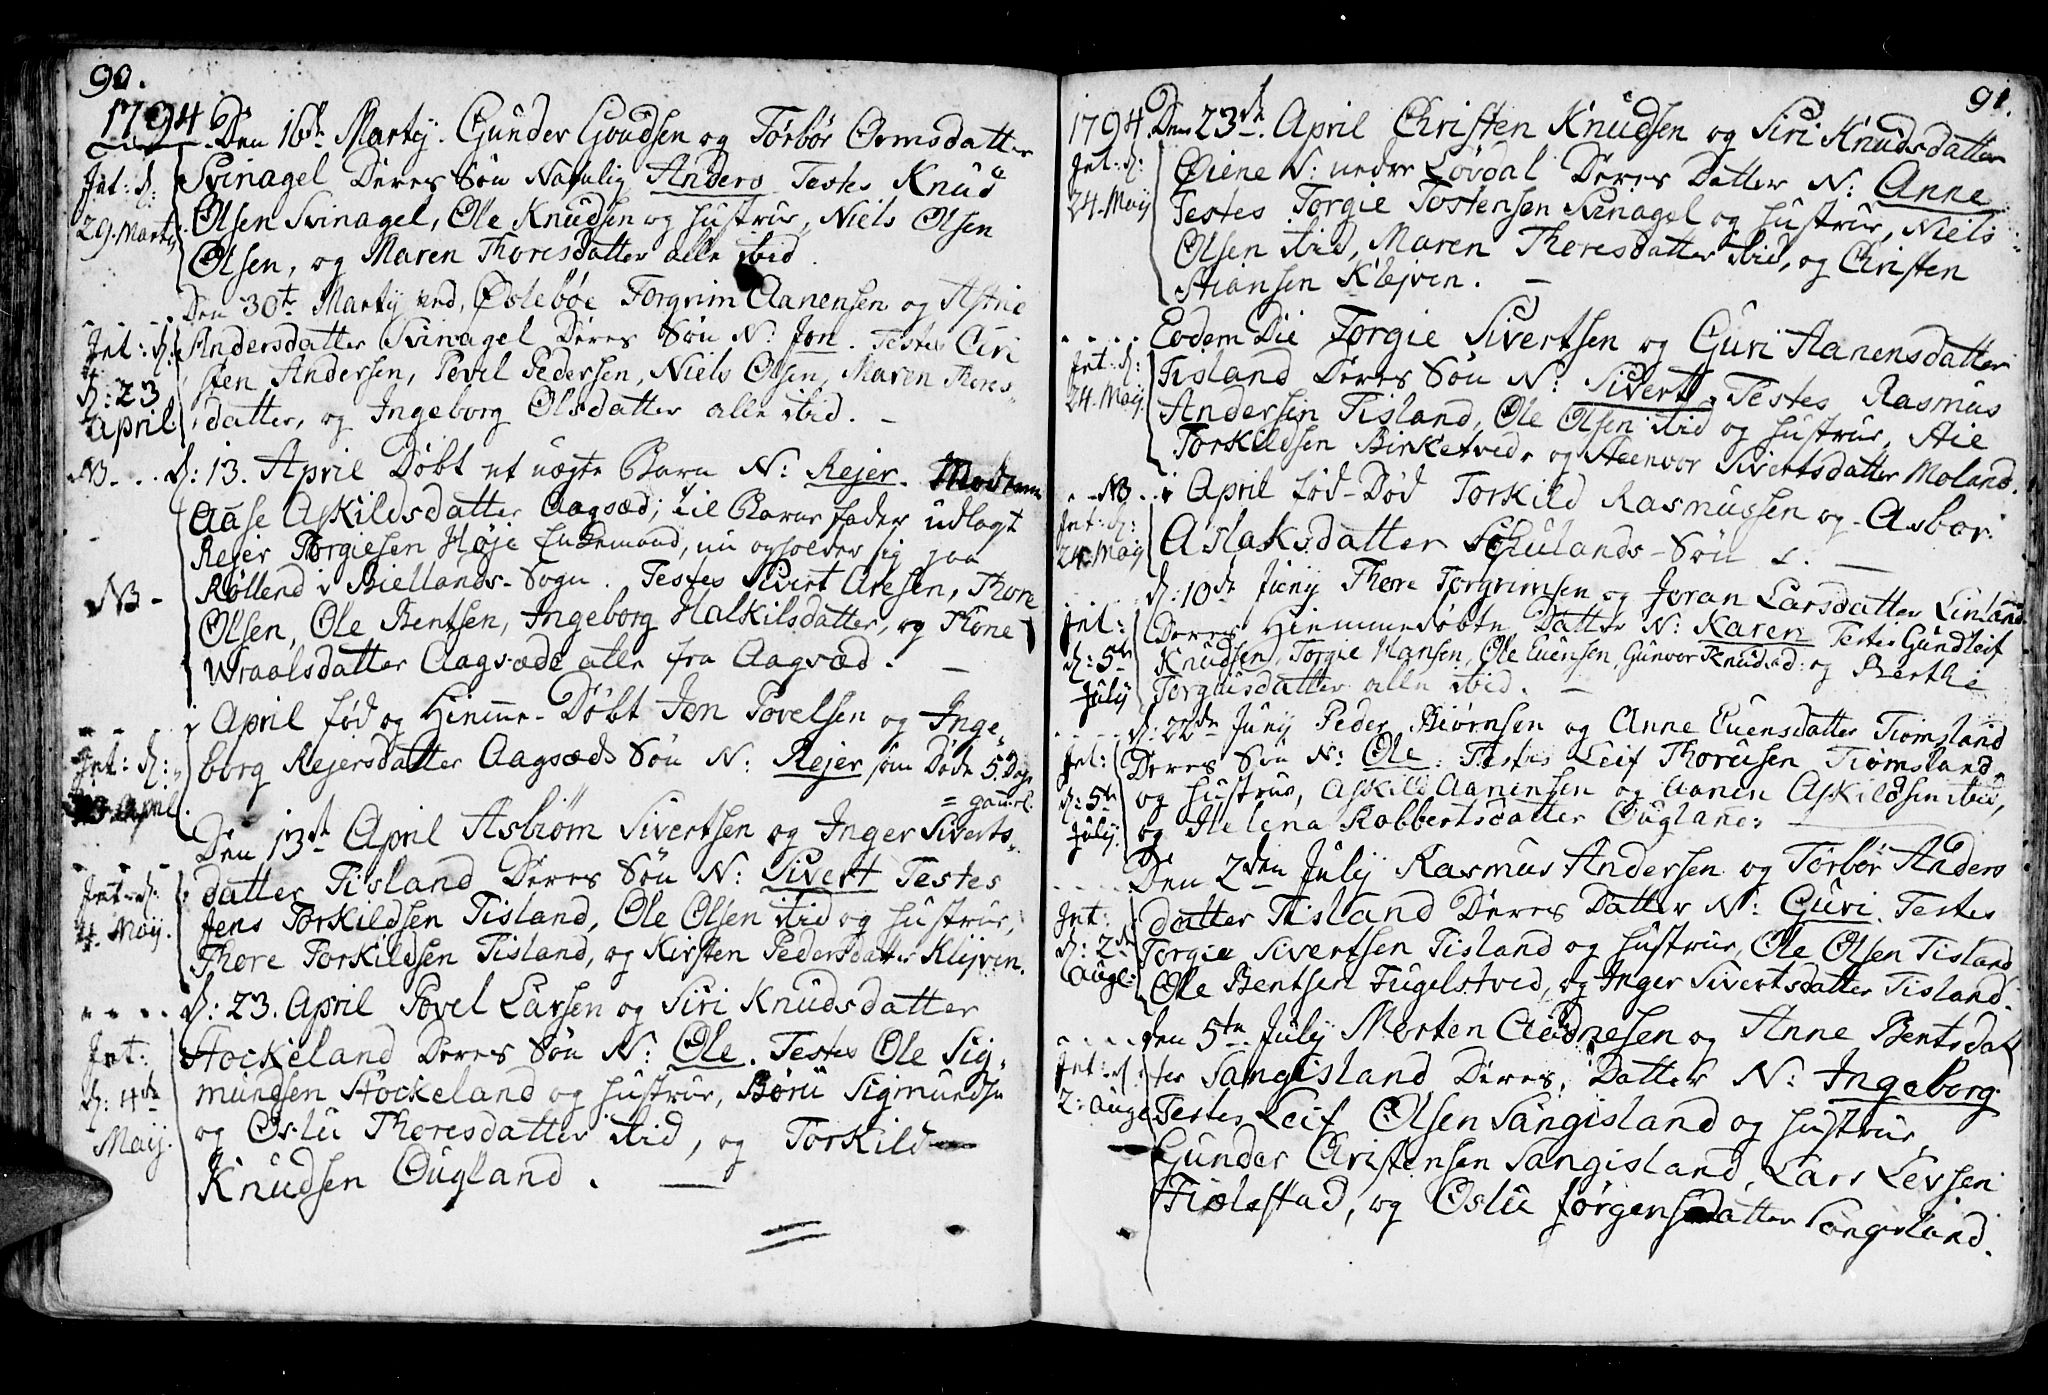 90.
1794
Den 16de Martij. Gunder Goudsen og Torbør Ormsdatter
Jnt: d: Svinagel Deres Søn Navnlig Anders Testes Knud
29. Mart: Olsen Svinagel, Ole Knudsen og Hustrue, Niels Olsen
Olsen, og Maren Thoresdatter alle ibid.
Den 30te Martij Torgrim Aanensen og Astrie
Jnt: d: Andersdatter Svinagel Deres Søn N: Jon. Testes Cri
sten Andersen, Povel Pedersen, Niels Olsen, Maren Thores-
d: 23 April datter, og Ingeborg Olsdatter alle ibid. -
NB - - . d: 13. April Døbt et uægte Barn N: Rejer. Moderen
Aase Askildsdatter Aagsæd; til Barne fader udlagt
Rejer Torgiesen Høje Enkemand, nu opholder sig paa
NB - Røllend i Biellands-Sogn. Testes Sivert Aresen, Thore
Olsen, Ole Bentsen, Ingeborg Halkilsdatter, og Thone
Wraalsdatter Aagsæde alle fra Aagsæd. -
i April fød og Hiemme-Døbt Jon Povelsen og Inge-
Jnt: d: borg Rejersdatter Aagsæds Søn N: Rejer som Døde 5. Dage
April = gammel.
Den 13de April Asbiøm Sivertsen og Inger Siverts-
Jnt: d: datter Tisland Deres Søn N: Sivert Testes
4. Maij. Jens Torkildsen Tisland, Ole Olsen ibid og Hustrue,
Thore Torkildsen Tisland, og Kirsten Pedersdatter Klejven.
d: 23. April Povel Larsen og Siri Knudsdatter
Jnt: Stockeland Deres Søn N: Ole. Testes Ole Sig-
d: 4de mundsen Stockeland og Hustrue, Børu Sigmundsen
Maij. og Oslu Thoresdatter ibid, og Torkild
Knudsen Ougland. -
91.
1794. Den 23de April Christen Knudsen og Siri Knudsdatter
Jnt: d: Øiene N: nedre Løvdal Deres Datter N: Anne
24. Maij Testes Torgie Tostensen Svinagel og Hustrue, Niels
Olsen ibid, Maren Thoresdatter ibid, og Christen
Stiansen Klejven. -
Eodem Die Torgie Sivertsen og Guri Aanensdatter
Jnt: d: Tisland Deres Søn N: Sivert. Testes Rasmus
24. Maij. Andersen Tisland, Ole Olsen ibid og Hustrue, Aie
Torkildsen Birketved, og Steenvor Sivertsdatter Moland.
- - NB - - i April fød-Død Torkild Rasmussen og Asbor
Jnt: d: 24. Maij Aslaksdatter Schulands-Søn. -
d: 10de Junij Thore Torgrimsen og Joran Larsdatter Linland
Jnt: Deres Hiemmedøbte Datter N: Karen Testes Gundleif
d: 5te Knudsen, Torgie Hansen, Ole Evensen, Gunvor Knudsd: og Berthe
July Torgiusdatter alle ibid. -
d: 22de Junij Peder Biørnsen og Anne Evensdatter Tiomsland
Jnt: Deres Søn N: Ole. Testes Leif Thorusen Tiomsland
d: 5te og Hustrue, Askild Aanensen og Aanen Askildsen ibid,
July. og Helena Robbertsdatter Ougland:
Den 2den July Rasmus Andersen og Torbør Anders
Jnt: datter Tisland Deres Datter N: Guri. Testes
d: 2de Torgie Sivertsen Tisland og Hustrue, Ole Olsen Tisland,
Auge: Ole Bentsen Fugelstved, og Inger Sivertsdatter Tisland.
den 5te July Morten Audnesen og Anne Bentsdat
Jnt: d: ter Sangisland Deres Datter N: Ingeborg.
2: Auge Testes Leif Olsen Sangisland og Hustrue,
Gunder Christensen Sangisland, Lars Levsen
Fiælestad, og Oslu Jørgensdatter Sangisland.